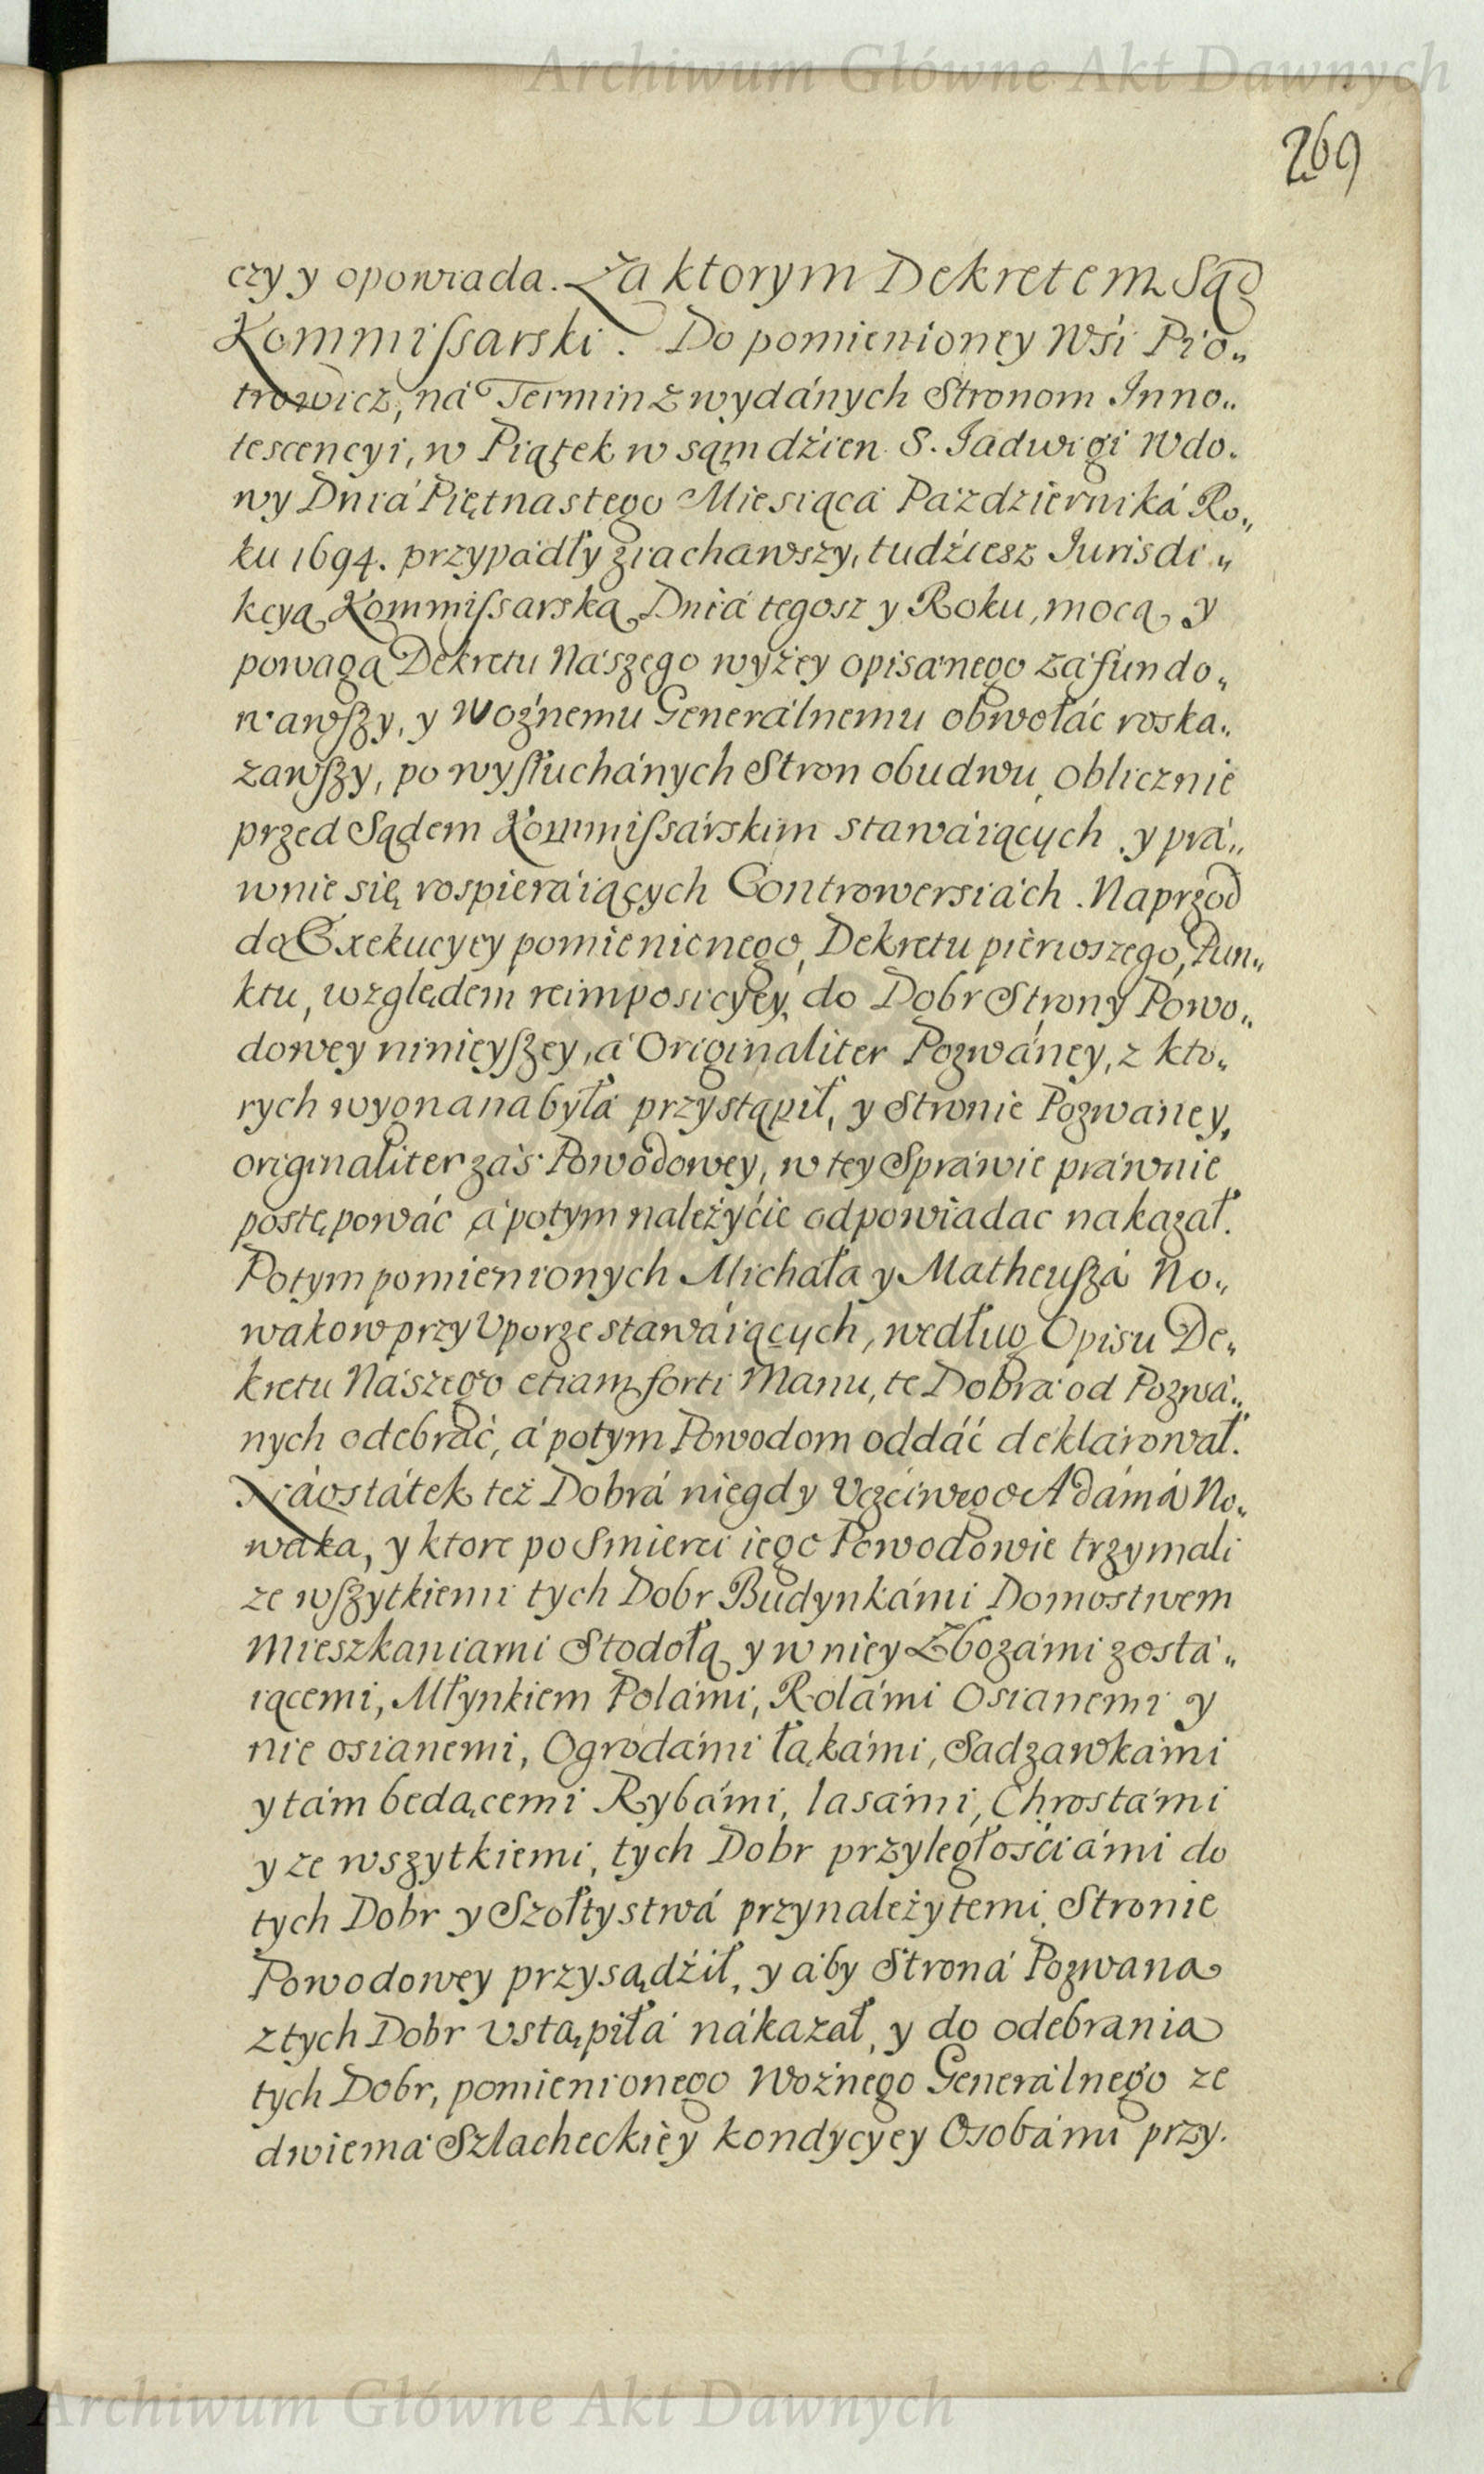 Archiwum Główne Akt Dawnych
269
czy y opowiada. Za ktorym Dekretem Sąd
Kommiſsarski. Do pomienioney Wśi Pio„
trowicz, ná Termin z wydánych Stronom Inno„
tescencyi, w Piątek w sąm dźien S. Jadwigi Wdo.
wy Dniá Piętnastego Miesiąca Pazdzierniká Ro„
ku 1694. przypádły ziachawszy, tudźiesz Iurisdi„
kcyą Kommiſsarską Dniá tegosz y Roku, mocą y
powagą Dekretu Nászego wyżey opisánego záfundo„
wawſzy, y Woźnemu Generálnemu obwołáć roska„
zawſzy, po wyſłuchánych Stron obudwu, oblicznie
przed Sądem Kommiſsárskim stawáiących y prá„
wnie się rospieráiących Controwersiách. Naprzod
do Exekucyey pomienienego, Dekretu pierwszego, Pun„
ktu, względem reimposicyey, do Dobr Strony Powo„
dowey ninieyſzey, á Originaliter Pozwáney, z kto„
rych wyonana byłá przystąpił, y Stronie Pozwáney,
originaliter záś Powodowey, w tey Spráwie práwnie
postępowáć á potym należyćie odpowiadac nakazał.
Potym pomienionych Michała y Matheuſzá No„
wakow przy Uporze stawáiących, według Opisu De„
kretu Nászego etiam forti Manu, te Dobrá od Pozwá„
nych odebráć, á potym Powodom oddáć deklárował.
Náostátek też Dobrá niegdy Uczćiwego Adámá No„
waka, y ktore po Smierci iego Powodowie trzymali
ze wſzytkiemi tych Dobr Budynkámi Domostwem
Mieszkaniami Stodołą y w niey Zbozámi zostá„
iącemi, Młynkiem Polámi, Rolámi Osianemi y
nie osianemi, Ogrodámi łąkámi, Sadzawkámi
y tám będącemi Rybámi, lasámi, Chrostámi
y ze wszytkiemi, tych Dobr przyległośćiámi do
tych Dobr y Szołtystwá przynależytemi Stronie
Powodowey przysądźił, y áby Stroná Pozwana
z tych Dobr ustąpiłá nákazał, y do odebrania
tych Dobr, pomienionego Woźnego Generálnego ze
dwiemá Szlacheckiey kondycyey Osobámi przy.
Archiwum Główne Akt Dawnych